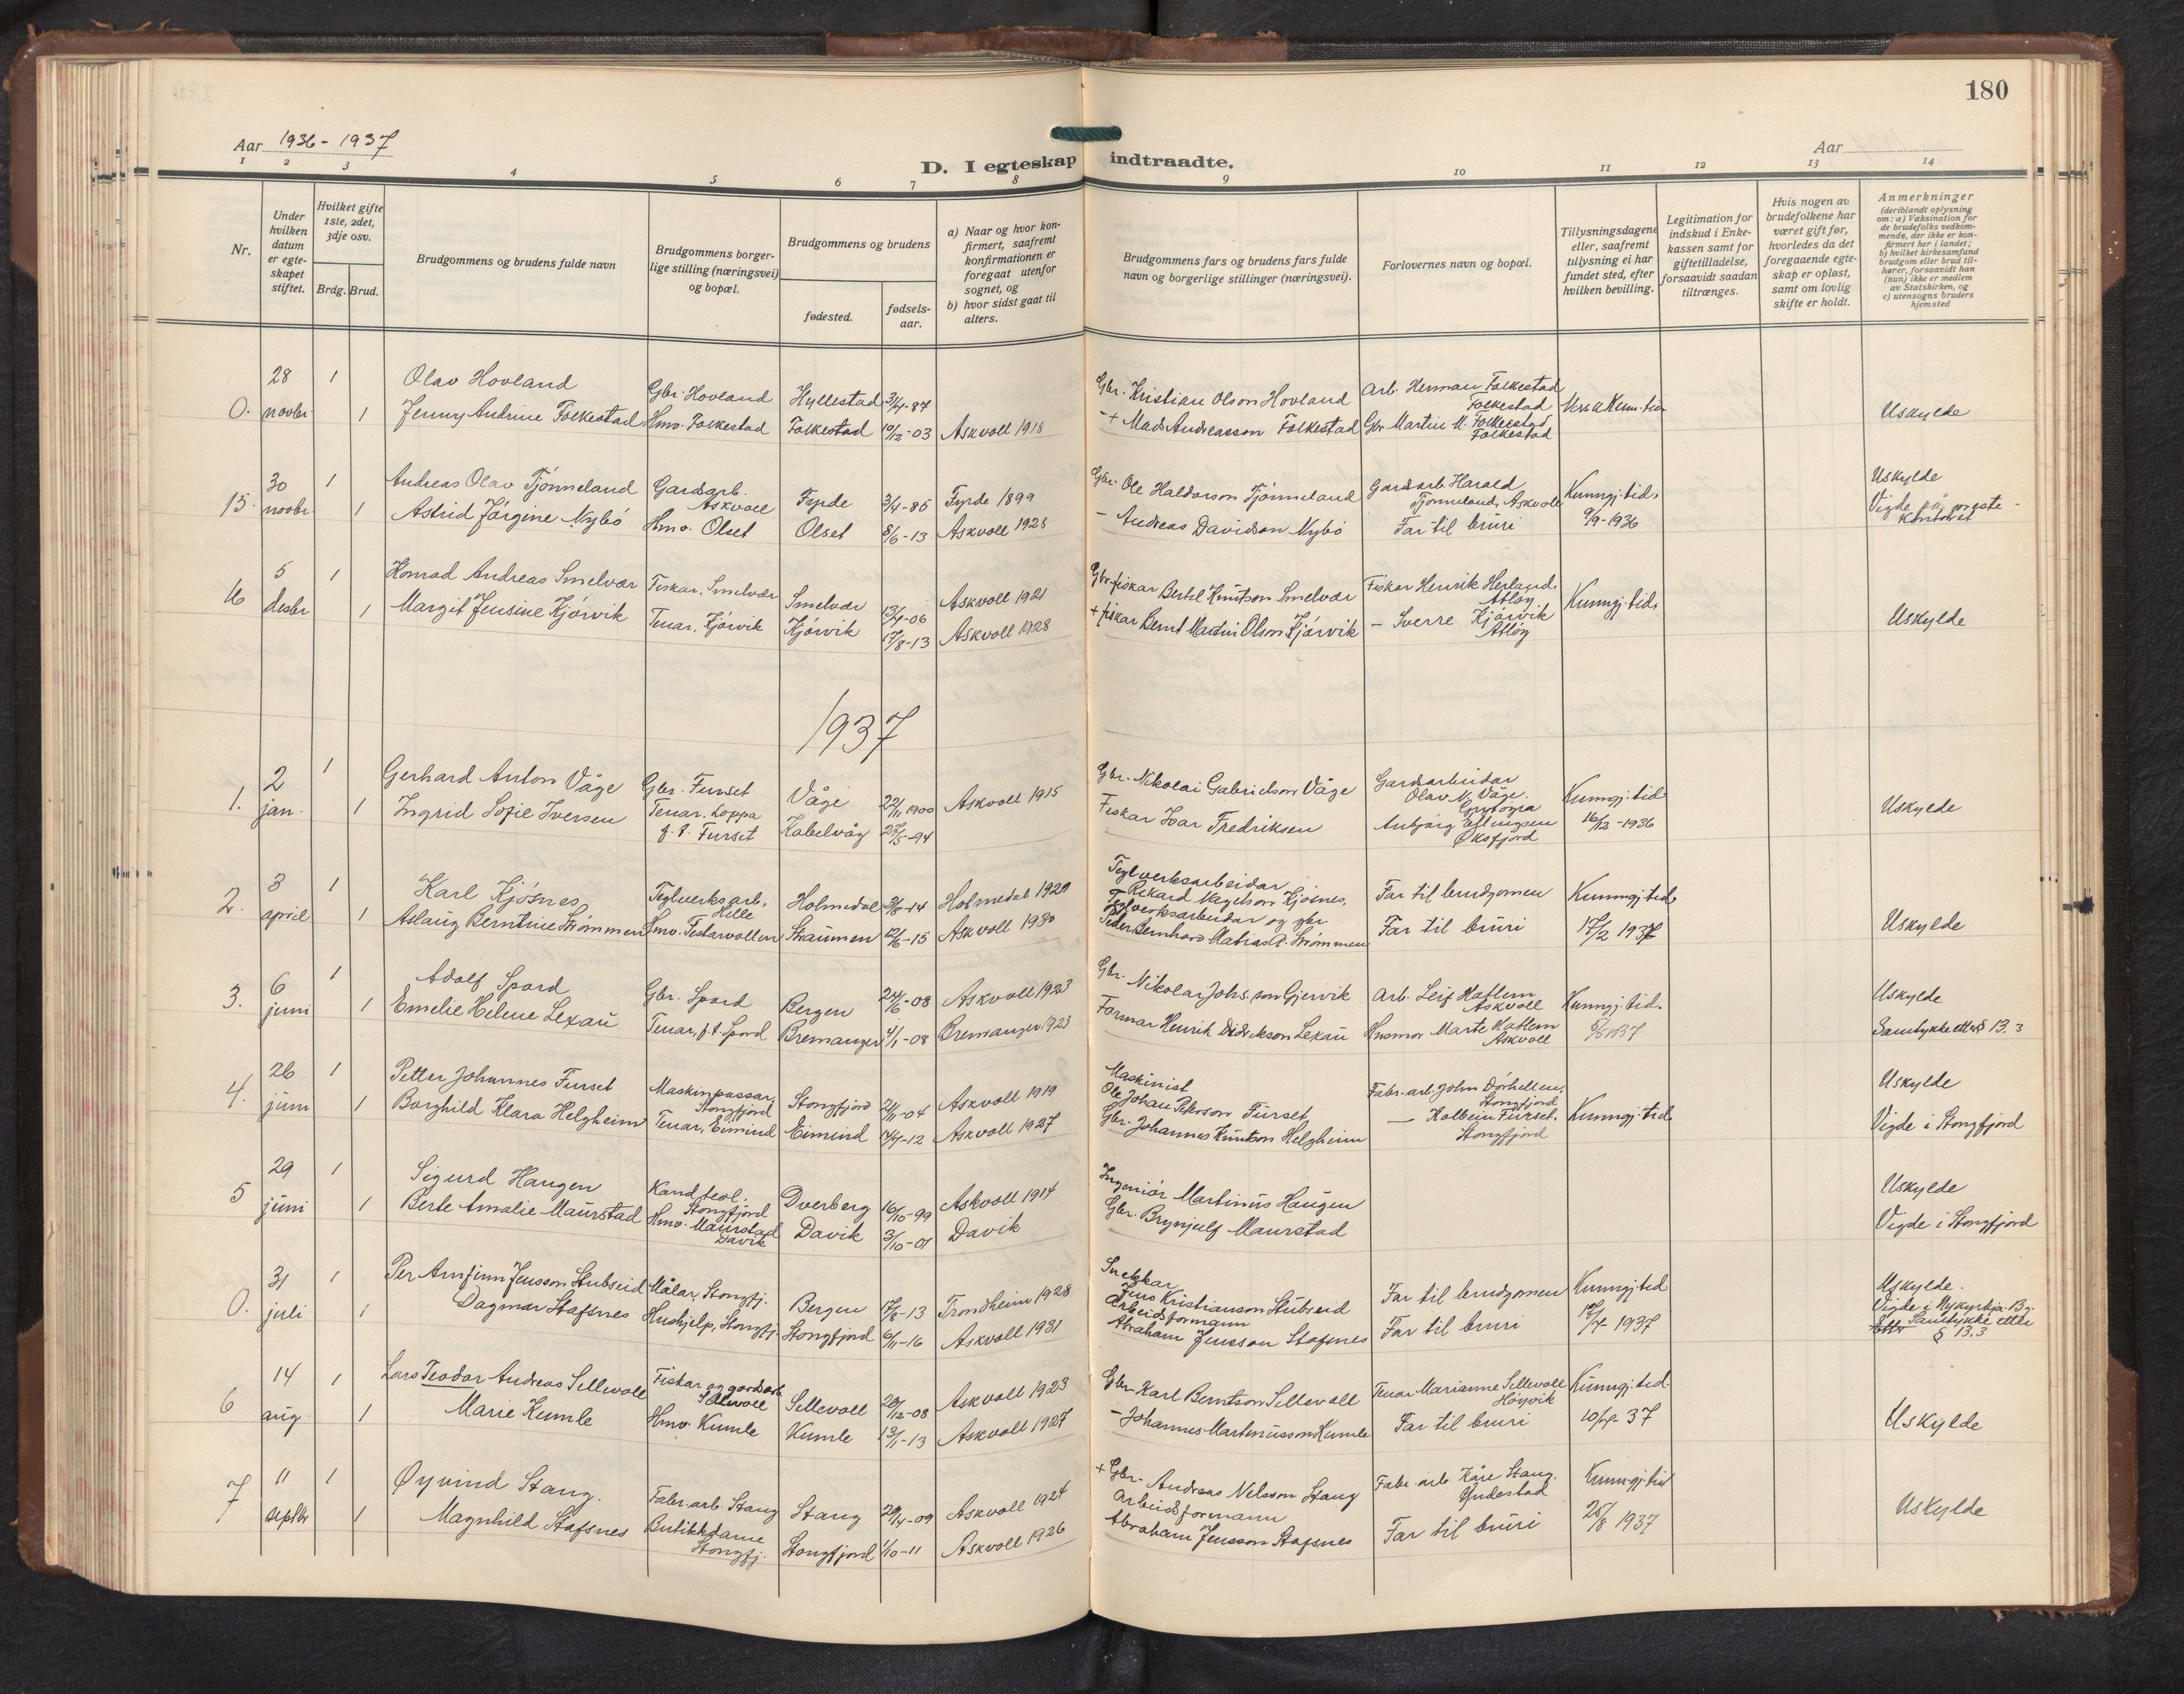 180
Aar 1936 - 1937
Aar
D. I egteskap indtraadte.
1 2 3 4 5 6 7 8 9 10 11 12 13 14
Nr.
Under hvilken datum er egteskapet stiftet.
Hvilket gifte 1ste, 2det, 3dje osv.
Brdg. Brud.
Brudgommens og brudens fulde navn
Brudgommens borgerlige stilling (næringsvei) og bopæl.
Brudgommens og brudens
fødested.
fødselsaar.
a) Naar og hvor konfirmert, saafremt konfirmationen er foregaat utenfor sognet, og
b) hvor sidst gaat til alters.
Brudgommens fars og brudens fars fulde navn og borgerlige stillinger (næringsvei).
Forlovernes navn og bopæl.
Tillysningsdagene eller, saafremt tillysning ei har fundet sted, efter hvilken bevilling.
Legitimation for indskud i Enkekassen samt for giftetilladelse, forsaavidt saadan tiltrænges.
Hvis nogen av brudefolkene har været gift før, hvorledes da det foregaaende egteskap er opløst, samt om lovlig skifte er holdt.
Anmerkninger
(deriblandt oplysning om: a) Vaksination for de brudefolks vedkommende, der ikke er konfirmert her i landet; b) hvilket kirkesamfund brudgom eller brud tilhører, forsaavidt han (hun) ikke er medlem av Statskirken, og c) utensogns bruders hjemsted
28 1 Olav Hovland Gbr. Hovland Hyllestad 3/4-87 Gbr. Kristian Olson Hovland Arb. Herman Folkestad Folkestad
0. novbr. 1 Jenny Andrine Folkestad Hmv. Folkestad Folkestad 10/12-03 Askvoll 1918 - + Mads Andreasson Folkestad Gbr. Martin M. Folkestad, Folkestad Uskylde
30 1 Andreas Olav Tjønneland Gardsarb. Askvoll Fyrde 3/4-85 Fyrde 1899 Gbr. Ole Haldorson Tjønneland Gardsarb. Harald Tjønneland, Askvoll Kunngj. tid. Uskylde
15. novbr. 1 Astrid Jørgine Nybø Hmv. Olset Olset 8/6-13 Askvoll 1928 - Andreas Davidson Nybø Far til bruri 9/9-1936 Vigde på prestekontoret
5 1 Konrad Andreas Smelvær Fiskar, Smelvær Smelvær 13/4-06 Askvoll 1921 Gbr. fiskar Bertel Knutson Smelvær Fiskar Henrik Herland, Atløy Kunngj. tid.
16 desbr 1 Margit Jensine Kjørvik Tenar, Kjørvik Kjørvik 17/8-13 Askvoll 1928 + fiskar Bernt Martin Olson Kjørvik - Sverre Kjørvik Atløy Uskylde
1937
2 1 Gerhard Anton Våge Gbr. Furset Våge 22/11 1900 Askvoll 1915 Gbr. Nikolai Gabrielson Våge Gardsarbeidar Olav N. Våge. Kunngj. tid.
1. jan. 1 Ingrid Sofie Iversen Tenar, Loppa f. t. Furset Kabelvåg 27/5-94 Fiskar Ivar Fredriksen Anbjørg Ellingsen Øksfjord 16/12-1936 Uskylde
3 1 Karl Kjøsnes Teglverksarb. Helle Holmedal Holmedal 1929 Teglverksarbeidar Rikard Nagelson Kjøsnes. Far til brudgomen Kunngj. tid.
2. april 1 Aslaug Berntine Strømmen Hmv. Straumen 12/6-15 Askvoll 1930 Teglverksarbeidar og gbr. Peder Bernhard Matias A. Strømmen Far til bruri 17/2 1937 Uskylde
6 1 Adolf Spord Gbr. Spord Bergen 24/6-08 Askvoll 1923 Gbr. Nikolai Johs. son Gjervik Arb. Leif Hatlem Askvoll Kunngj. tid. Uskylde
3. juni 1 Emelie Helene Lexau Tenar, f. t. Spord Bremanger 4/1-08 Bremanger 1923 Farmar Henrik Didrikson Lexau Husmor Marte Hatlem Askvoll 8/5 1937 Samtykke etter § 13.3
26 1 Petter Johannes Furset Maskinpassar, Stongfjord Stongfjord 21/11-04 Askvoll 1919 Maskinist Ole Johan Peterson Furset Fabr. arb. John Dørhellen, Stongfjord Uskylde
4. juni 1 Borghild Klara Helgheim Tenar, Eimind Eimind 14/4-12 Askvoll 1927 Gbr. Johannes Knutson Helgheim - Kolbein Furset. Stongfjord Kunngj. tid. Vigde i Stongfjord
29 1 Sigurd Haugen Kand. teol. Stongfjord Dverberg 16/10-99 Askvoll 1914 Ingeniør Martinus Haugen Uskylde
5 juni 1 Berte Amalie Maurstad Hmv. Maurstad Davik Davik 3/10-01 Davik Gbr. Brynjulf Maurstad Vigde i Stongfjord
31 1 Per Arnfinn Jensson Stubseid Målar, Stongfj. Bergen 17/8-13 Trondheim 1928 Snekkar Jens Kristianson Stubseid Far til brudgomen Kunngj. tid Uskylde.
0. juli 1 Dagmar Stafsnes Hushjelp, Stongfj. Stongfjord 6/11-16 Askvoll 1931 Arbeidsformann Abraham Jensson Stafsnes Far til bruri 12/7-1937 Vigde i Nykyrkja. Bg. Samtykke etter § 13.3
14 1 Lars Teodor Andreas Sellevoll Fiskar og gardsarb. Sellevoll Sellevoll 20/12-08 Askvoll 1923 Gbr. Karl Berntson Sellevoll Tenar Marianne Sellevoll Høyvik Kunngj. tid.
6 aug 1 Marie Kumle Hmv. Kumle Kumle 13/11-13 Askvoll 1927 - Johannes Martinusson Kumle Far til bruri 10/7-37 Uskylde
11 1 Øyvind Stang. Fabr. arb. Stang Stang 29/4-09 Askvoll 1924 + Gbr. Andreas Nilsson Stang Fabr. arb. Kåre Stang. Yndestad Kunngj. tid
7 septbr 1 Magnhild Stafsnes Butikkdame Stongfj. Stongfjord 1/10-11 Askvoll 1926 Arbeidsformann Abraham Jensson Stafsnes Far til bruri 25/8 1937 Uskylde